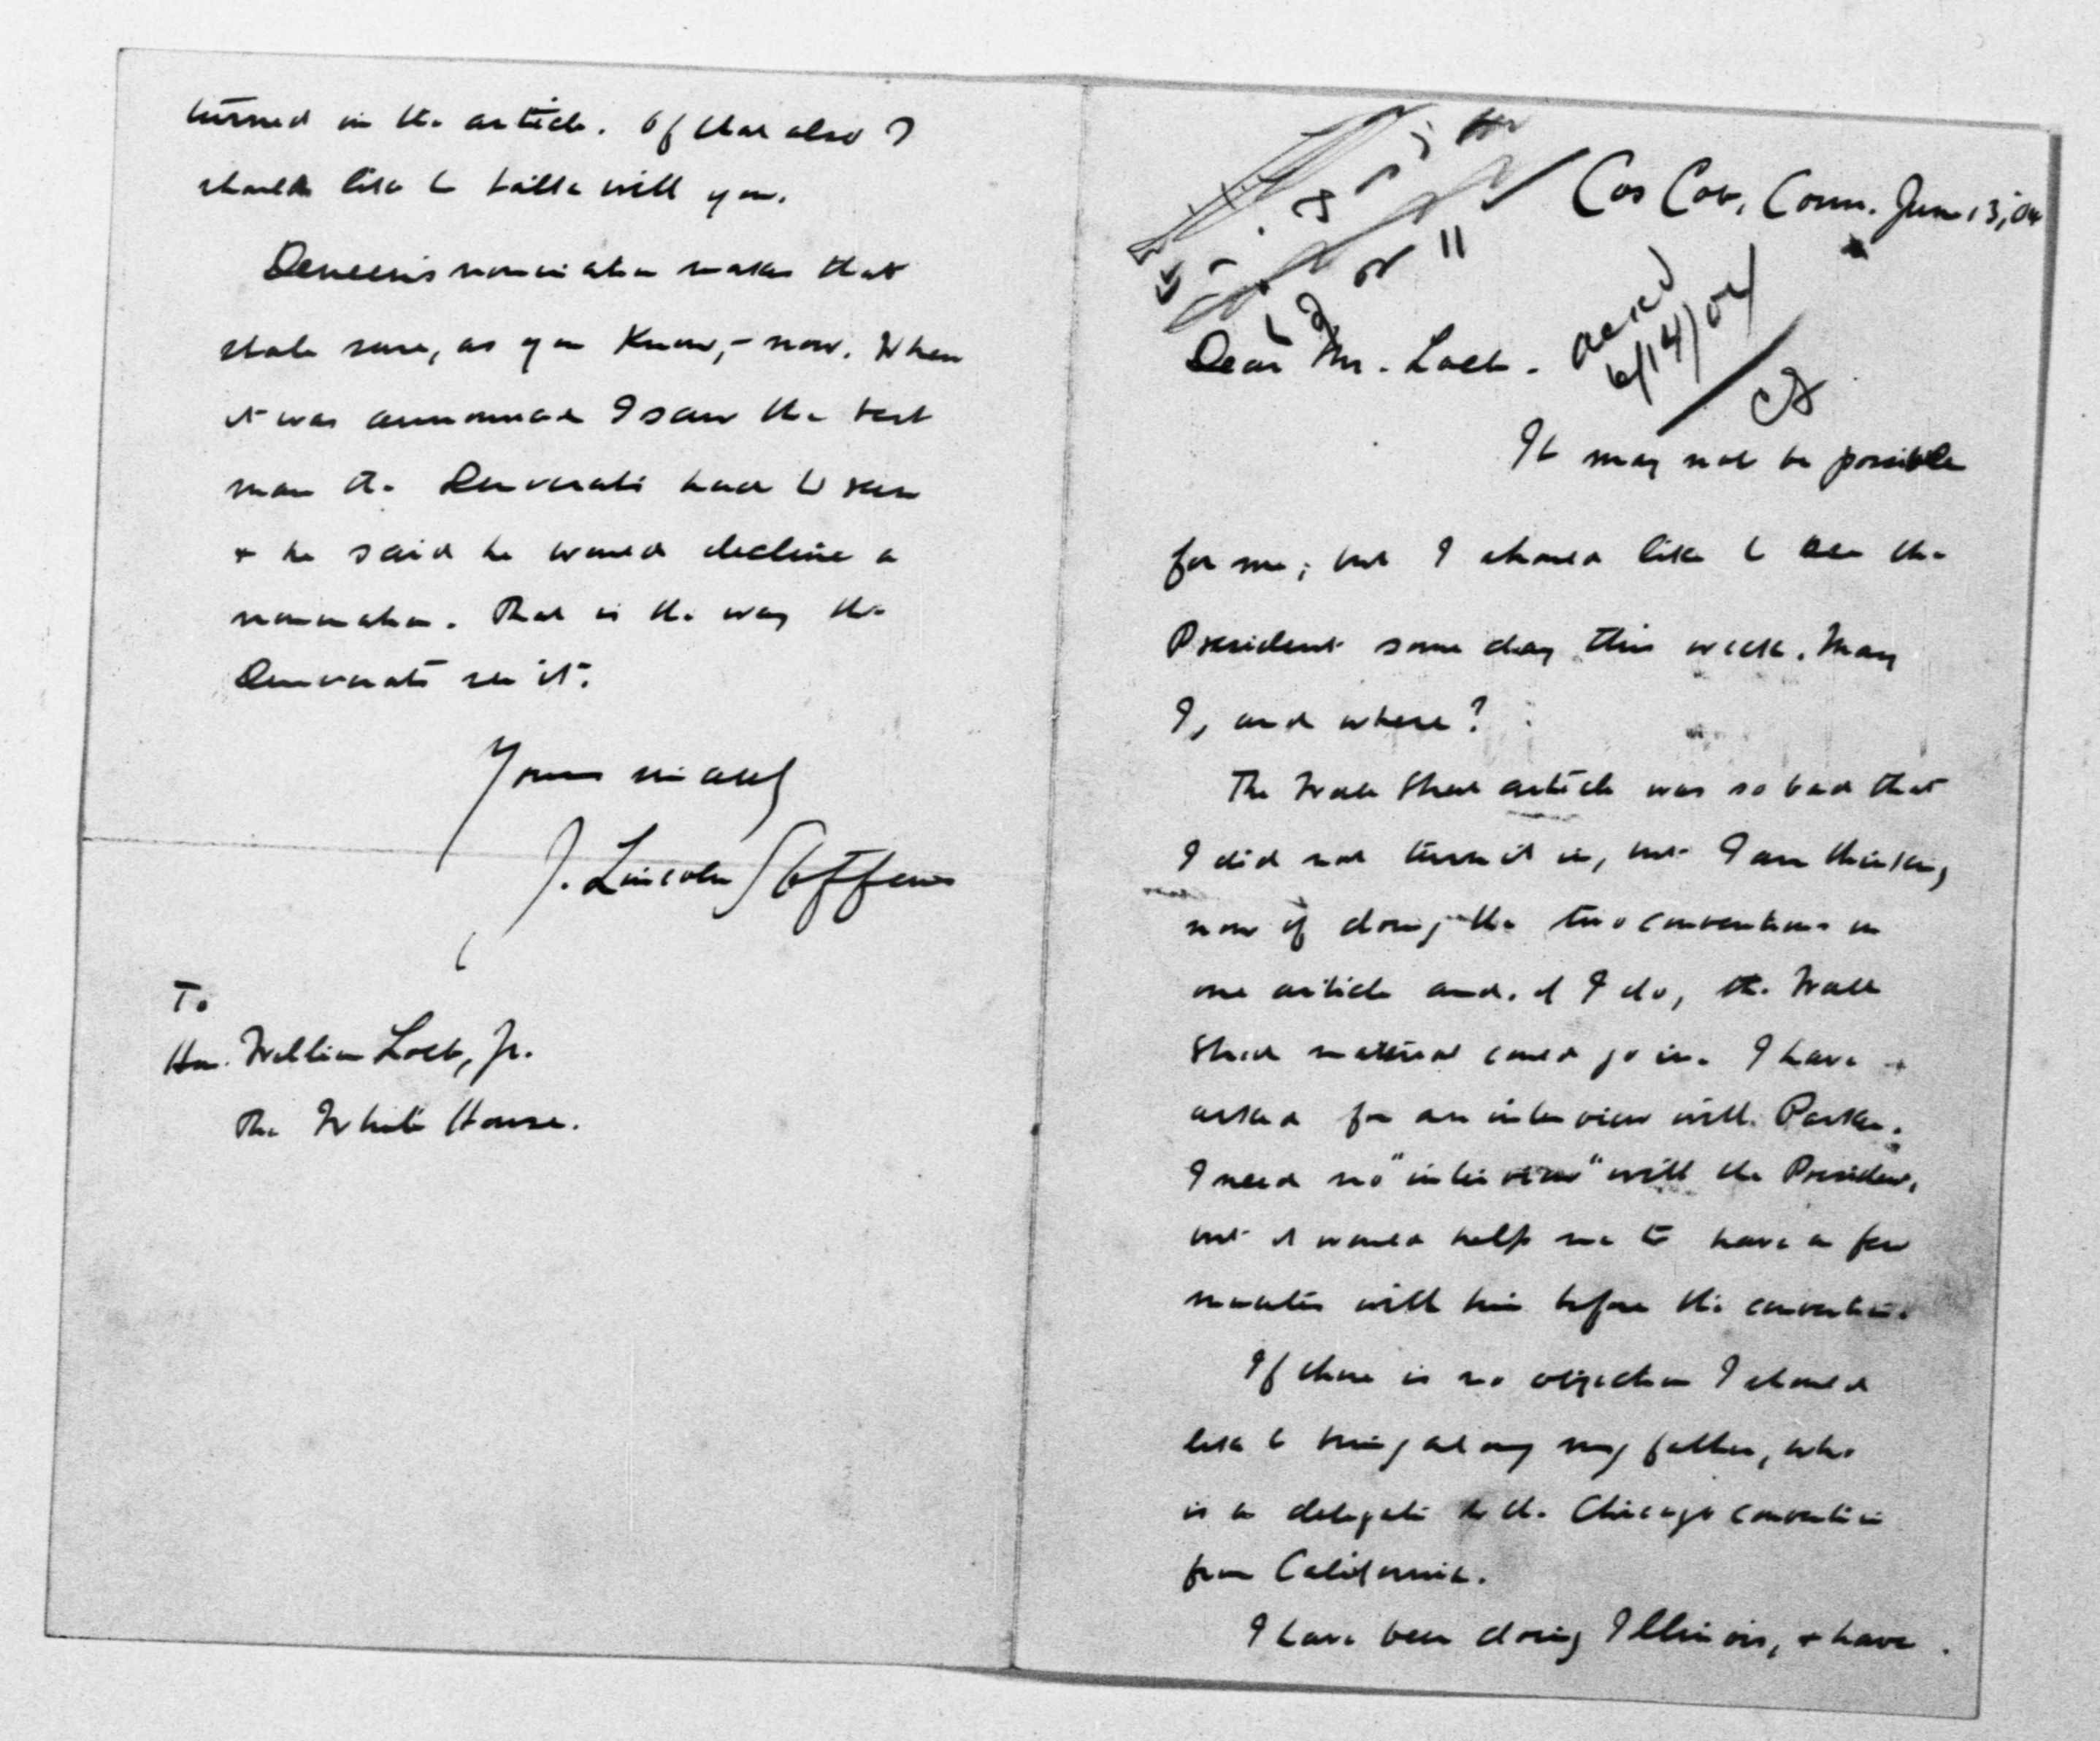 Cos Cob, Conn. June 13, 04
ackd
6/14/04
Dear Mr. Loeb.
It may not be possible
for me; but I should like to see the
President some day this week. May
I, and where?
The Wall Street article was so bad that
I did not turn it in, but I am thinking
now of doing the two conventions in
one article and, if I do, the Wall
Street material could go in. I have
asked for an interview with Parker.
I need no "interview" with the President,
but it would help me to have a few
minutes with him before the convention.
If there is no objection I should
like to bring along my father, who
is a delegate to the Chicago convention
from California.
I have been doing Illinois, + have
turned in the article. Of that also I
should like to talk with you.
Deneen's nomination makes that
state sure, as you know, - now. When
it was announced I saw the best
man the Democrats had to run
+ he said he would decline a
nomination. That is the way the
Democrats see it.
Yours sincerely
J. Lincoln Steffens
To
Hon. William Loeb, Jr.
The White House.